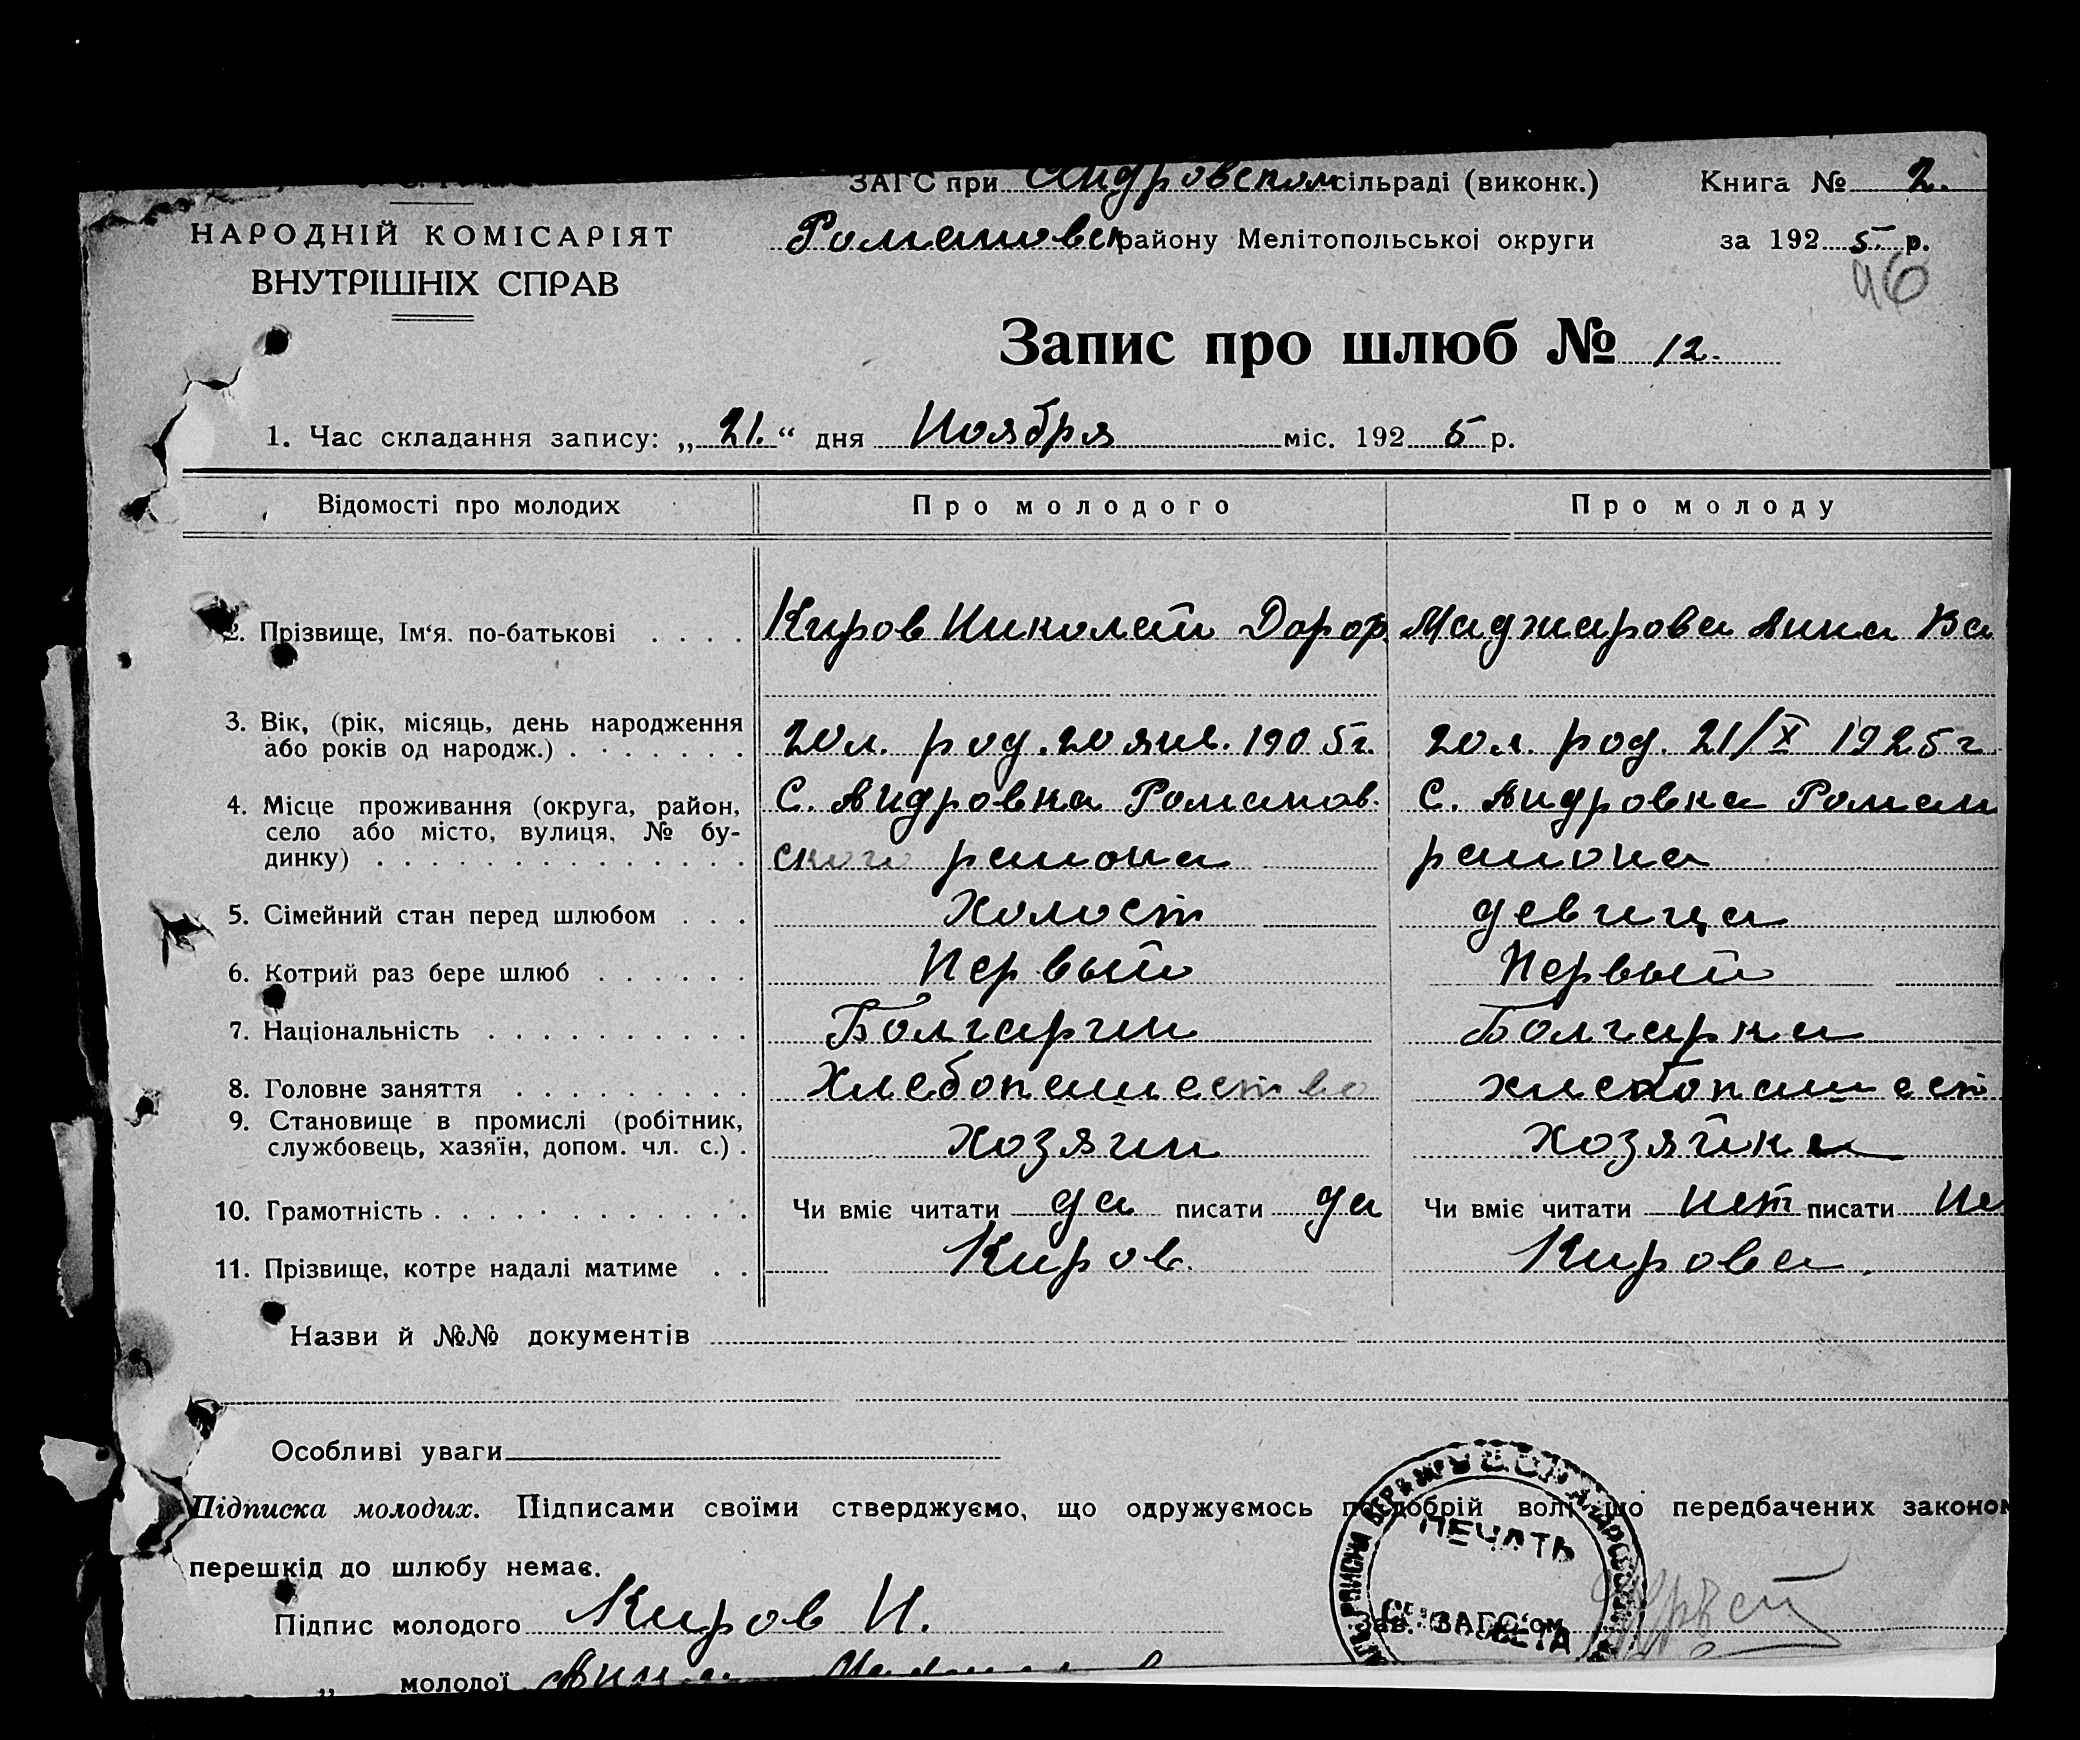 ЗАГС при Андровском сільраді (виконк.) Книга № 2.
НАРОДНІЙ КОМІСАРІЯТ
ВНУТРІШНІХ СПРАВ
Романовск району Мелітопольської округи за 1925 р.
46
Запис про шлюб № 12.
1. Час складання запису: „21.“ дня Ноября міс. 1925 р.
Відомості про молодих Про молодого Про молоду
2. Прізвище, Ім‘я. по-батькові . . . . Киров Николай Дороф. Маджарова Анна Ва
3. Вік, (рік, місяць, день народження
або років од народж.) . . . . . . . 20 л. род. 20 янв. 1905 г. 20 л. род. 21/X 1925 г
4. Місце проживання (округа, район,
село або місто, вулиця, № бу-
динку) . . . . . . . . . . . . . .
С. Андровка Романов. С. Андровка Роман
ского района района
5. Сімейний стан перед шлюбом . . . Холост девица
6. Котрий раз бере шлюб . . . . . . Первый Первый
7. Національність . . . . . . . . . . Болгарин Болгарка
8. Головне заняття . . . . . . . . . Хлебопашество хлебопашест
9. Становище в промислі (робітник,
службовець, хазяїн, допом. чл. с.) . хозяин хозяйка
10. Грамотність . . . . . . . . . . . . Чи вміє читати да писати да Чи вміє читати нет писати не
11. Прізвище, котре надалі матиме . . Киров. Кирова.
Назви й №№ документів
Особливі уваги
Підписка молодих. Підписами своїми стверджуємо, що одружуємось по добрій волі що передбачених законом
перешкід до шлюбу немає.
ПЕЧАТЬ
Підпис молодого Киров Н. Зав. ЗАГС‘ом
„ молодої Анна